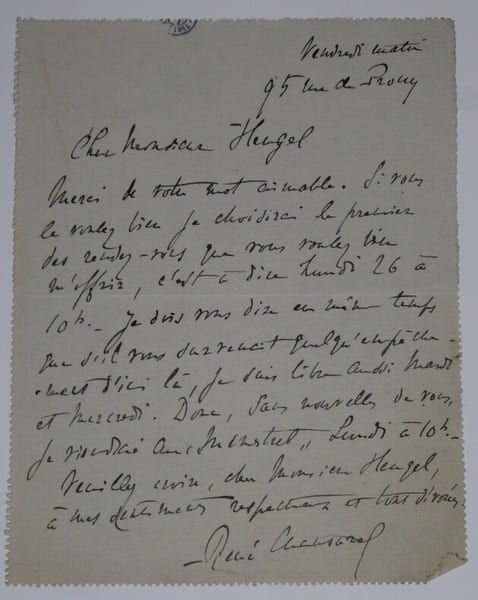 Vendredi matin
95 rue de Prony
Cher Monsieur Heugel
Merci de votre mot aimable. Si vous
le voulez bien je choisirai le premier
des rendez-vous que vous voulez bien
m'offrir, c'est à dire Lundi 26 à
10h. — Je dois vous dire en même temps
que s'il vous survenait quelqu'empêche-
-ment d'ici là, je suis libre aussi Mardi
et Mercredi. Donc, sans nouvelles de vous,
je viendrai au "Menestrel" Lundi à 10h. —
Veuillez croire, cher Monsieur Heugel,
à mes sentiments respectueux et tous dévoués.
— René Chansarel